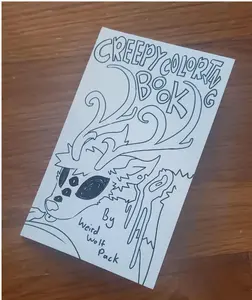 CREEPY COLORING
BOOK
By
Weird
Wolf
Pack